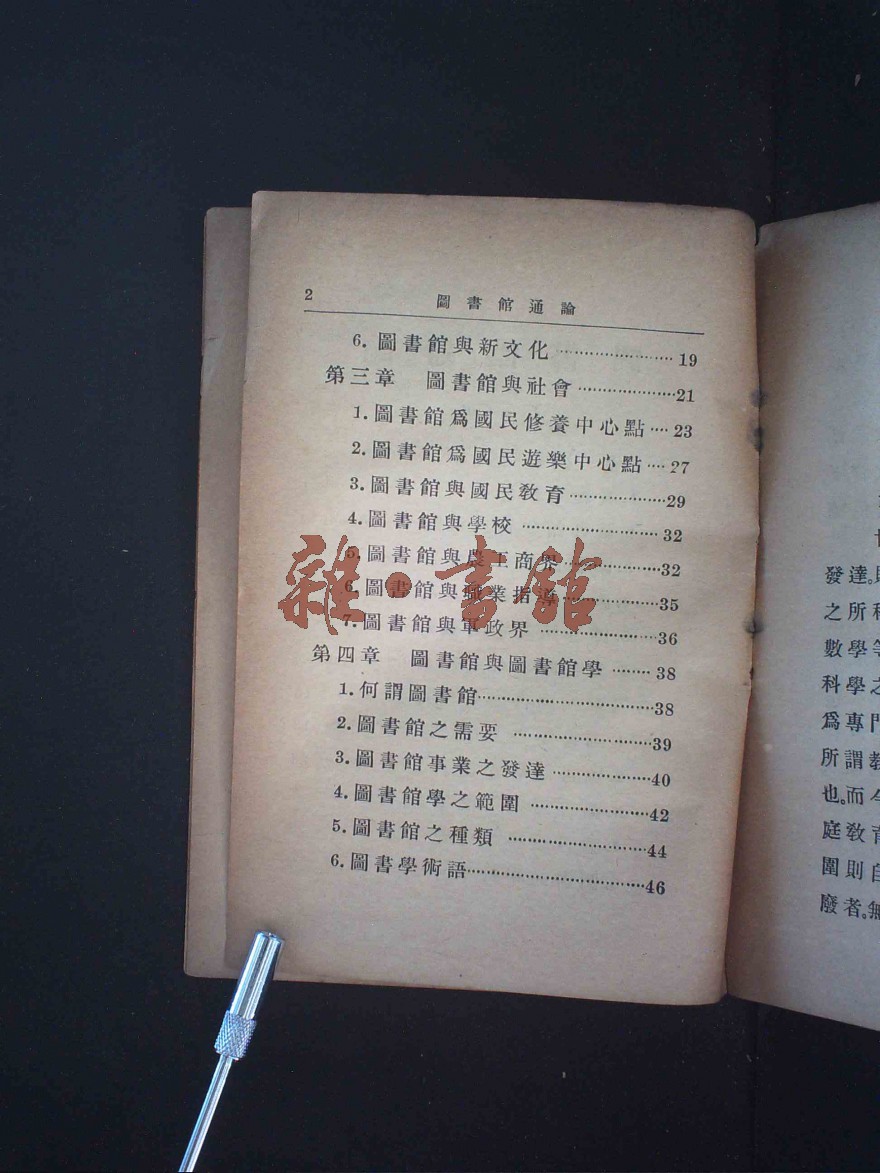 2 圖書館通論
6. 圖書館與新文化 …………………… 19
第三章 圖書館與社會 …………………21
1. 圖書館爲國民修養中心點 …… 23
2. 圖書館爲國民遊樂中心點 …… 27
3. 圖書館與國民敎育 …………………29
4. 圖書館與學校 ………………………… 32
5. 圖書館與農工商界 …………………32
6. 圖書館與職業指導 …………………35
7. 圖書館與軍政界 ……………………36
第四章 圖書館與圖書館學 ……… 38
1. 何謂圖書館………………………………38
2. 圖書館之需要 ………………………39
3. 圖書館事業之發達 …………………40
4. 圖書館學之範圍 ……………………42
5. 圖書館之種類 ………………………44
6. 圖書學術語………………………………46
雜·書館
發達。
之所
數學等
科學之
爲專門
所謂敎
也。而今
庭敎育
圍則自
廢者。無